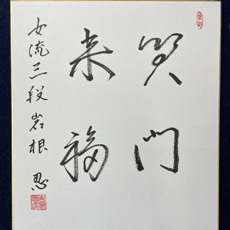 笑門
来福
女流三段 岩根 忍